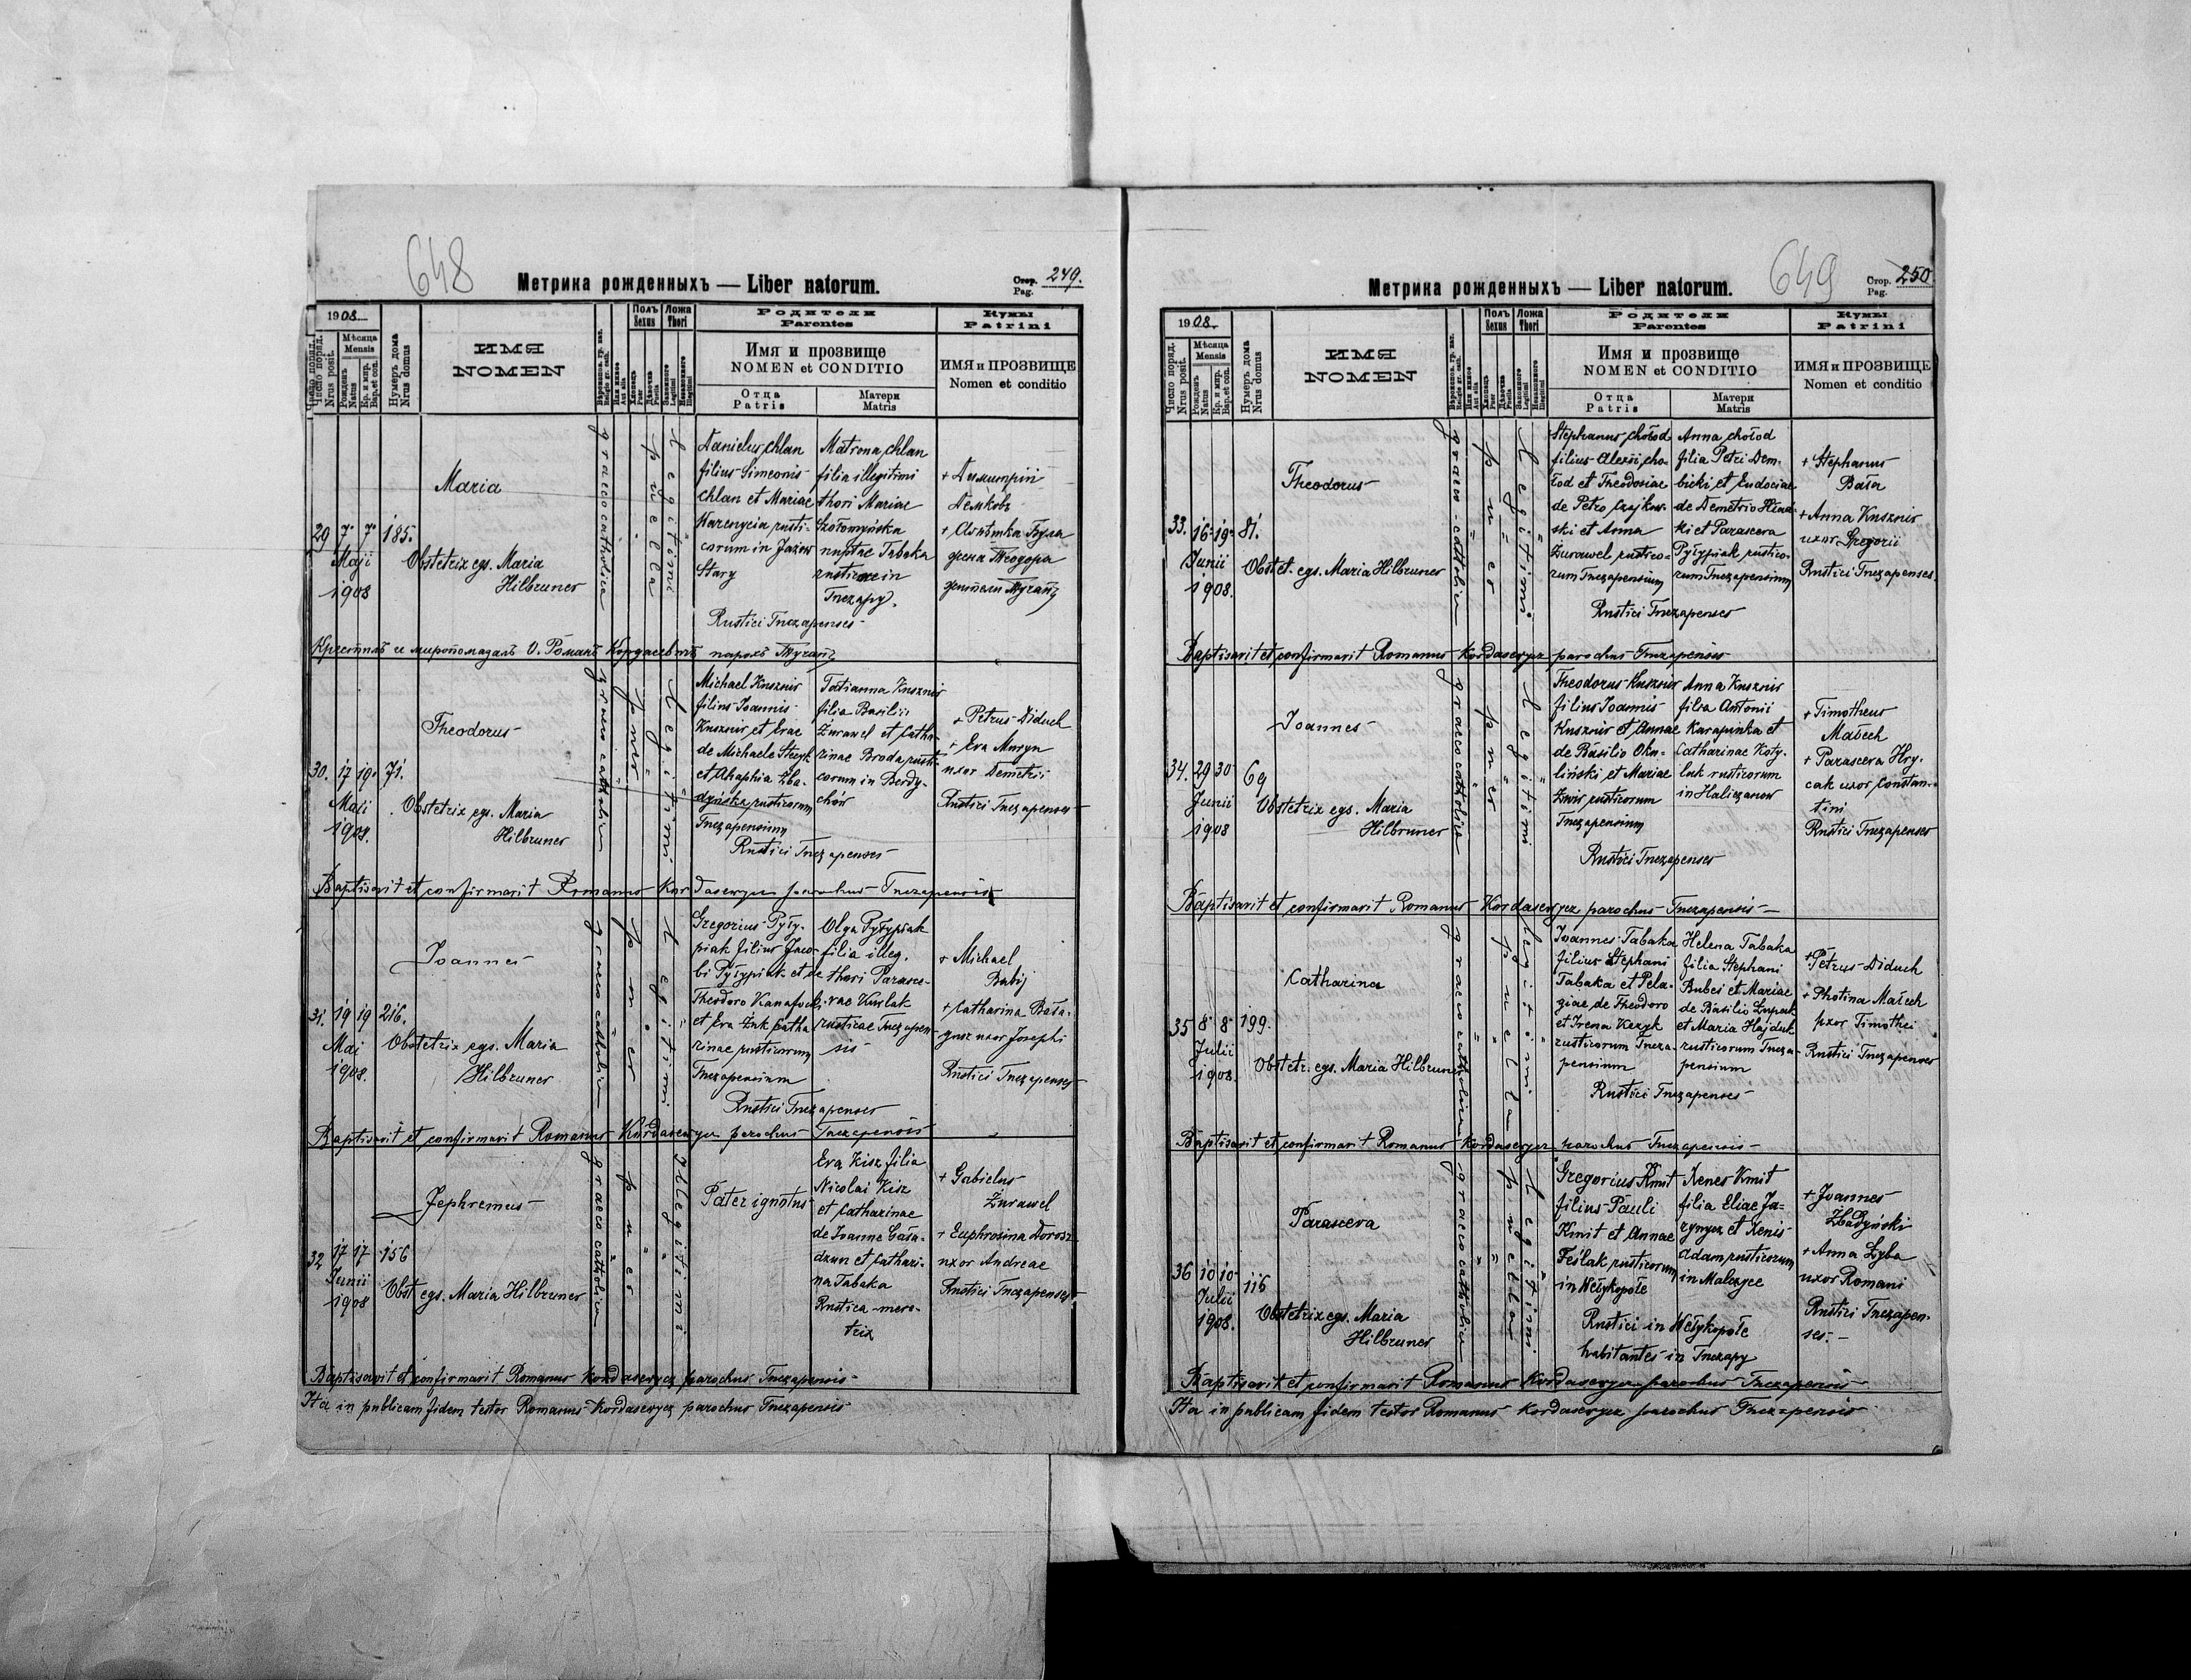 648
Метрика рожденныхъ — Liber natorum.
Стор. Pag. 249.
1908
Число поряд. Nrus posit.
Мѣсяца Mensis
Рожденъ Natus
Кр. и мир. Bap. et con.
Нумеръ дома Nrus domus
ИМЯ
NOMEN
Полъ Sexus
Ложа Thori
Родители
Parentes
Имя и прозвище
NOMEN et CONDITIO
Отца Patris
Матери Matris
Кумы
Patrini
ИМЯ и ПРОЗВИЩЕ
Nomen et conditio
29 7 7 185.
Maji
1908
Maria
Obstetrix egs. Maria
Hilbruner
graeco catholica
puella
Legitimi
Danielus Chlan
filius Simeonis
Chlan et Mariae
Harenycia rusti-
corum in Jazow
Stary
Matrona Chlan
filia illegitimi
thori Mariae
nuptae Tabaka
rusticae in
Tuczapy.
Rustici Tuczapenses
+ Димитрій
Демковъ
жена Теодора
жители Тучапъ
Крестилъ и миропомазалъ О. Романъ Кордасевичъ парохъ Тучапъ
30. 17 19 71.
Maii
1908.
Theodorus
Obstetrix egs. Maria
Hilbruner
graeco catholica
puer
Legitimi
Michael Kusznir
filius Joannis
Kusznir et Evae
de Michaele Stezyk
et Ahaphia Zba-
dyńska rusticorum
Tuczapensium
Tatianna Kusznir
filia Basilii
Żurawel et Catha-
rinae Broda rusti-
corum in Berdy-
chów
Rustici Tuczapenses
+ Petrus Diduch
+ Eva Muryn
uxor Demetrii
Rustici Tuczapenses
Baptisavit et confirmavit Romanus Kordasewycz parochus Tuczapensis
31. 19 19 216.
Maj
1908.
Joannes
Obstetrix egs. Maria
Hilbruner
graeco catholica
puer
Legitimi
Gregorius Pyły-
piak filius Jaco-
bi Pyłypiak et de
Theodoro Kanafocki
et Eva Żuk Catha
rinae rusticorum
Tuczapensium
Olga Pyłypiak
filia illeg.
thori Parasce-
vae Kuslak
rusticae Tuczapen-
sis
Rustici Tuczapenses
+ Michael
Babij
+ Catharina Bała-
gusz uxor Josephi
Rustici Tuczapenses
Baptisavit et confirmavit Romanus Kordasewycz parochus Tuczapensis
32 17 17 156
Junii
1908
Jephremus
Obst egs. Maria Hilbruner
graeco catholica
puer
Illegitimi
Pater ignotus
Eva Kisz filia
Nicolai Kisz
et Catharinae
de Joanne Gała-
dzun et Cathari-
na Tabaka
Rustica mere-
trix
+ Gabielus
Żurawel
+ Euphrosina Dorosz
uxor Andreae
Rustici Tuczapenses
Baptisavit et confirmavit Romanus Kordasewycz parochus Tuczapensis
Ita in publicam fidem testor Romanus Kordasewycz parochus Tuczapensis
649
Метрика рожденныхъ — Liber natorum.
Стор. Pag. 250.
1908
Число поряд. Nrus posit.
Мѣсяца Mensis
Рожденъ Natus
Кр. и мир. Bap. et con.
Нумеръ дома Nrus domus
ИМЯ
NOMEN
Полъ Sexus
Ложа Thori
Родители
Parentes
Имя и прозвище
NOMEN et CONDITIO
Отца Patris
Матери Matris
Кумы
Patrini
ИМЯ и ПРОЗВИЩЕ
Nomen et conditio
33. 16 19 81.
Junii
1908.
Theodorus
Obstet. egs. Maria Hilbruner
graeco-catholica
puer
Legitimi
Stephanus Chołod
filius Alexii Cho-
łod et Theodosiae
de Petro Czajkow-
ski et Anna
Żurawel rustico-
rum Tuczapensium
Anna Chołod
filia Petri Dem-
bicki et Eudociae
de Demetrio Hład-
ki et Parascera
Pyłypiak rustico-
rum Tuczapensium
Rustici Tuczapenses
+ Stephanus
Bała
+ Anna Kusznir
uxor Gregorii
Rustici Tuczapenses.
Baptisavit et confirmavit Romanus Kordasewycz parochus Tuczapensis
34. 29 30 69
Junii
1908
Joannes
Obstetrix egs. Maria
Hilbruner
graeco catholica
puer
Legitimi
Theodorus Kusznir
filius Joannis
Kusznir et Annae
de Basilio Oku-
liński et Mariae
Żwir rusticorum
Tuczapensium
Anna Kusznir
filia Antonii
Karapinka et
Catharinae Koty-
luk rusticorum
in Haliczanow
Rustici Tuczapenses
+ Timotheus
Małech
+ Parascera Hry-
cak uxor Constan-
tini
Rustici Tuczapenses
Baptisavit et confirmavit Romanus Kordasewycz parochus Tuczapensis
35 8 8 199.
Julii
1908.
Catharina
Obstetr. egs. Maria Hilbruner
graeco catholica
puella
Legitimi
Joannes Tabaka
filius Stephani
Tabaka et Pela-
giae de Theodoro
et Irena Kezyk
rusticorum Tucza-
pensium
Helena Tabaka
filia Stephani
Bubci et Mariae
de Basilio Żupak
et Maria Hajduk
rusticorum Tucza-
pensium
Rustici Tuczapenses
+ Petrus Diduch
+ Photina Małech
uxor Timothei
Rustici Tuczapenses
Baptisavit et confirmavit Romanus Kordasewycz parochus Tuczapensis
36 10 10 116
Julii
1908.
Parascera
Obstetrix egs. Maria
Hilbruner
graeco catholica
puella
Legitimi
Gregorius Kmit
filius Pauli
Kmit et Annae
Feślak rusticorum
in Wełykopołe
Xenes Kmit
filia Eliae Ja-
rynycz et Xenis
Adam rusticorum
in Malczyce
Rustici in Wełykopołe
habitantes in Tuczapy
+ Joannes
Zbadyński
+ Anna Zyba
uxor Romani
Rustici Tuczapen-
ses.-
Baptisavit et confirmavit Romanus Kordasewycz parochus Tuczapensis
Ita in publicam fidem testor Romanus Kordasewycz parochus Tuczapensis